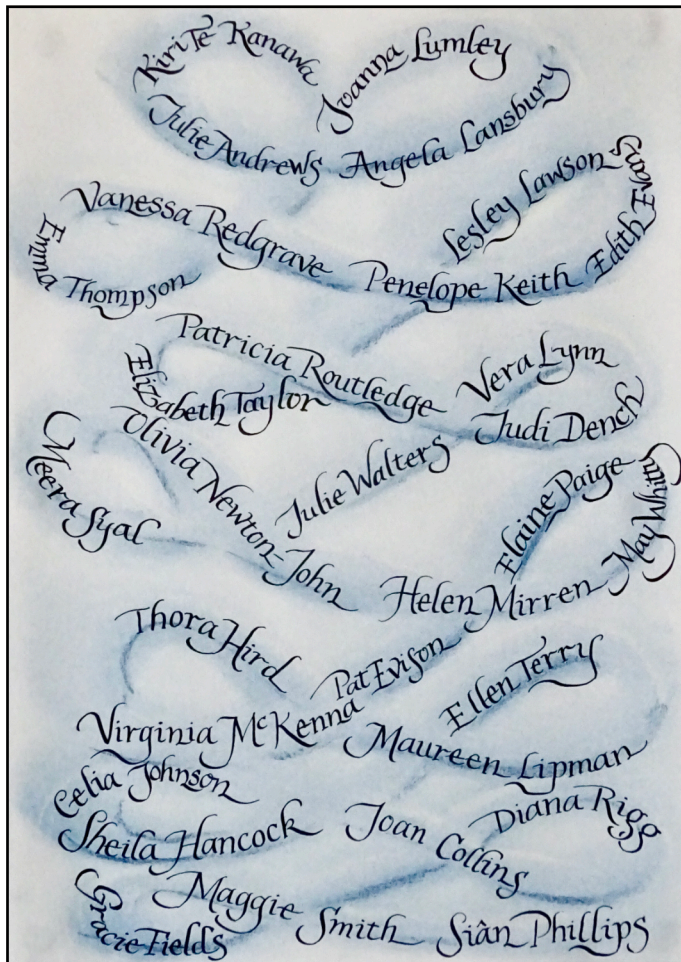 Kiri Te Kanawa
Joanna Lumley
Julie Andrews
Angela Lansbury
Lesley Lawson
Edith Evans
Vanessa Redgrave
Emma Thompson
Penelope Keith
Patricia Routledge
Vera Lynn
Elizabeth Taylor
Judi Dench
Olivia Newton-John
Julie Walters
Meera Syal
Elaine Paige
May Whitty
Helen Mirren
Thora Hird
Pat Evison
Ellen Terry
Virginia McKenna
Maureen Lipman
Celia Johnson
Diana Rigg
Sheila Hancock
Joan Collins
Maggie Smith
Gracie Fields
Siân Phillips